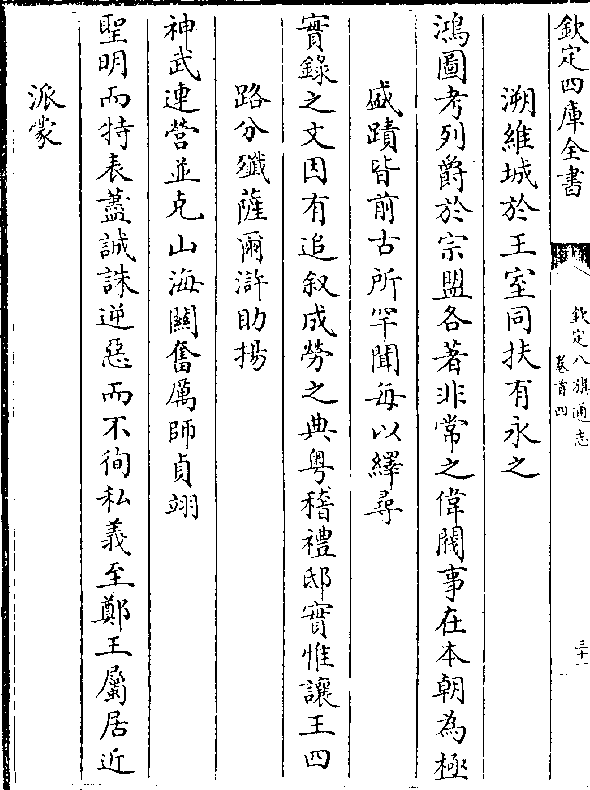 欽定四庫全書
欽定八旗通志
卷首四
三十一
溯維城於王室同扶有永之
鴻圖考列爵於宗盟各著非常之偉閥事在本朝為極
盛蹟皆前古所罕聞每以繹尋
實錄之文因有追叙成勞之典粤稽禮邸實惟讓王四
路分殲薩爾滸助揚
神武連營並克山海關奮厲師貞翊
聖明而特表藎誠誅逆惡而不徇私義至鄭王屬居近
派蒙